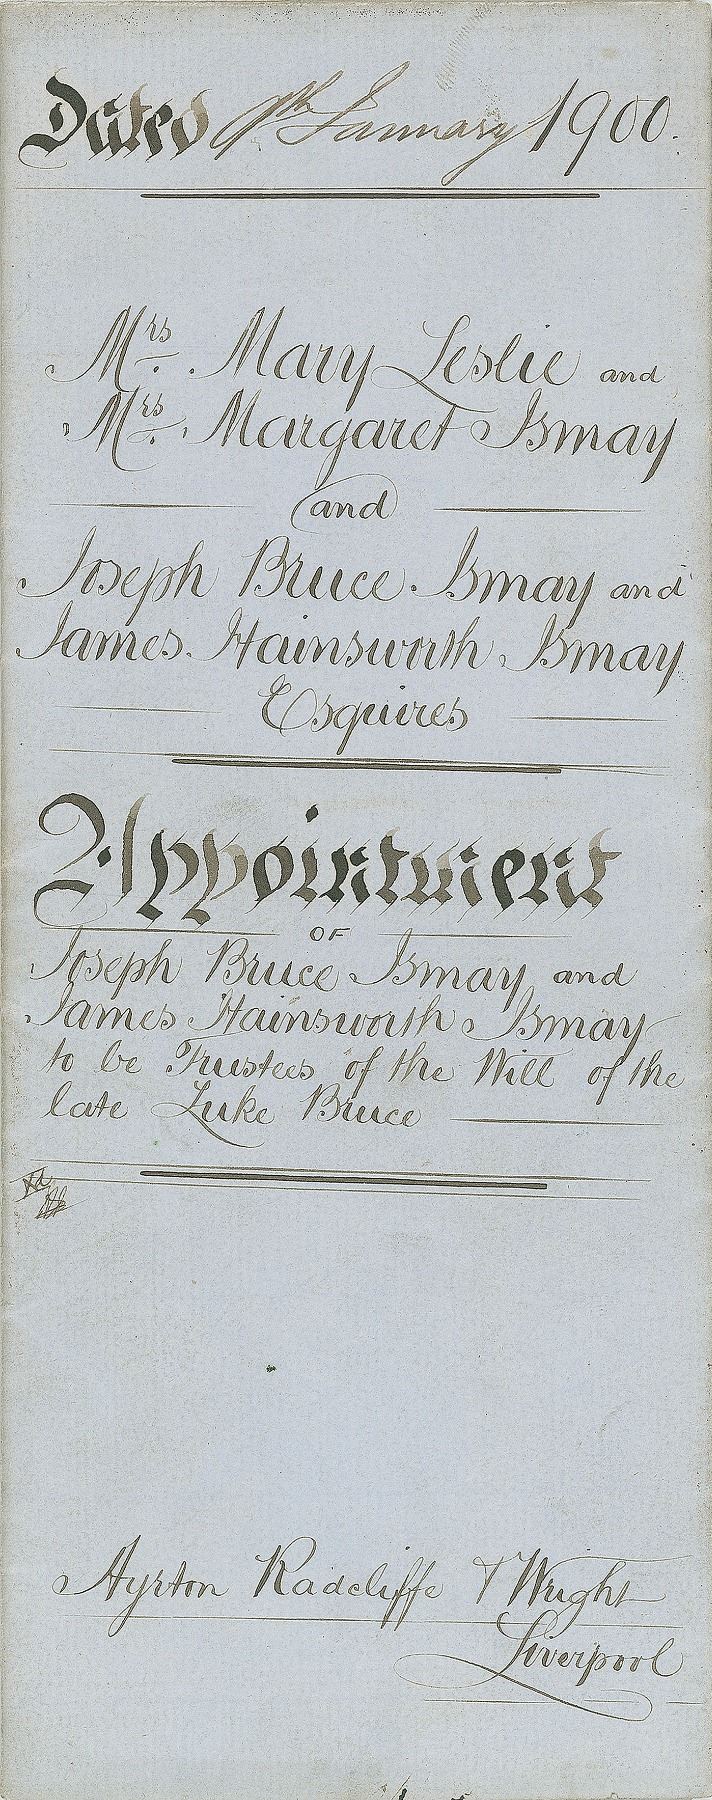 Dated 9th January 1900.
Mrs. Mary Leslie and
Mrs. Margaret Ismay
and
Joseph Bruce Ismay and
James Hainsworth Ismay
Esquires
Appointment
OF
Joseph Bruce Ismay and
James Hainsworth Ismay
to be Trustees of the Will of the
late Luke Bruce
Ayrton Radcliffe & Wright
Liverpool